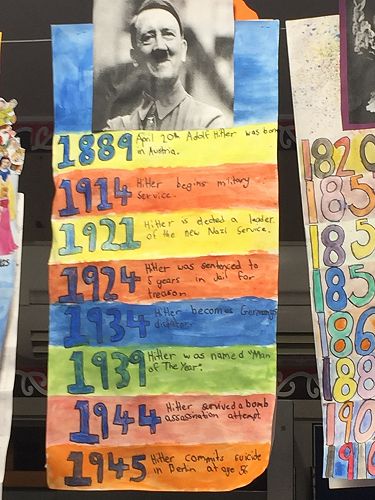 1889 April 20th Adolf Hitler was born
in Austria.
1914 Hitler begins military
service.
1921 Hitler is elected a leader
of the new Nazi Service.
1924 Hitler was sentenced to
5 years in Jail for
treason
1934 Hitler becomes Germanys
dictator.
1939 Hitler was named "Man
of The Year".
1944 Hitler survived a bomb
assassination attempt
1945 Hitler commits suicide
in Berlin at age 56
1820
185
185
185
186
188
190
191